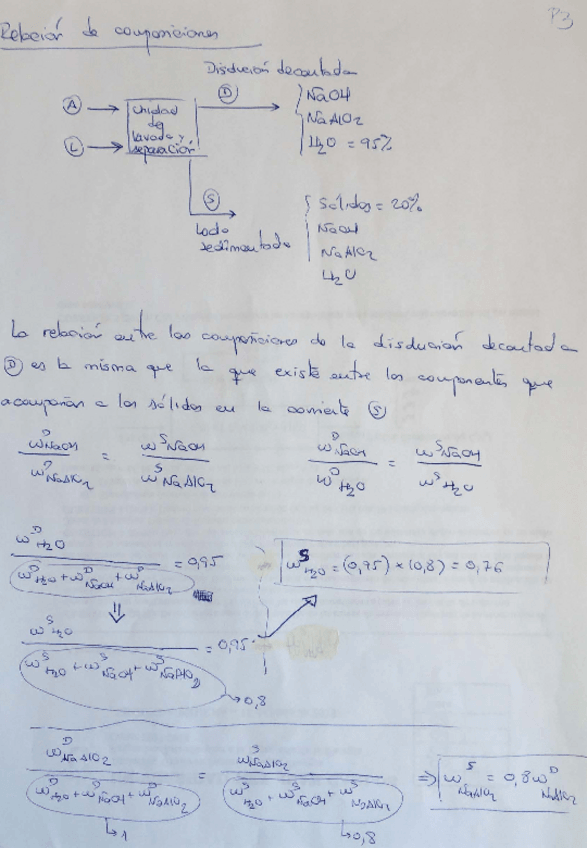 P3
Relación de composiciones
Disolución decantada
A
D
NaOH
Unidad
de
lavado y
separación
NaAlO2
H2O = 95%
L
S
Sólidos = 20%
Lodo
sedimentado
NaOH
NaAlO2
H2O
La relación entre las composiciones de la disolución decantada
D es la misma que la que existe entre los componentes que
acompañan a los sólidos en la corriente S
ω^D NaOH / ω^D NaAlO2 = ω^S NaOH / ω^S NaAlO2
ω^D NaOH / ω^D H2O = ω^S NaOH / ω^S H2O
ω^D H2O / (ω^D H2O + ω^D NaOH + ω^D NaAlO2) = 0,95
ω^S H2O = (0,95) × (0,8) = 0,76
⇓
ω^S H2O / (ω^S H2O + ω^S NaOH + ω^S NaAlO2) = 0,95
→ 0,8
ω^D NaAlO2 / (ω^D H2O + ω^D NaOH + ω^D NaAlO2) = ω^S NaAlO2 / (ω^S H2O + ω^S NaOH + ω^S NaAlO2) ⇒ ω^S NaAlO2 = 0,8 ω^D NaAlO2
↳ 1
↳ 0,8